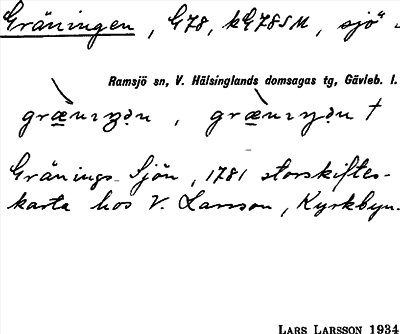 Gräningen, G78, kG78SM, sjö
Ramsjö sn, V. Hälsinglands domsagas tg, Gävleb. l.
Gränings-Sjön, 1781 storskiftes-
karta hos V. Larsson, Kyrkbyn.
LARS LARSSON 1934